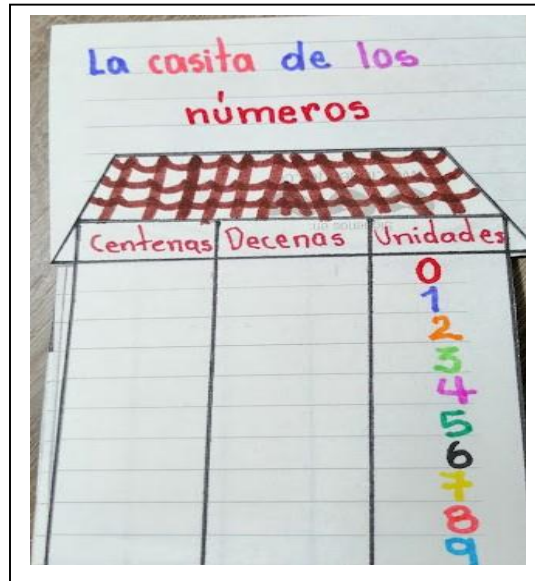 La casita de los
números
Centenas Decenas Unidades
0
1
2
3
4
5
6
7
8
9